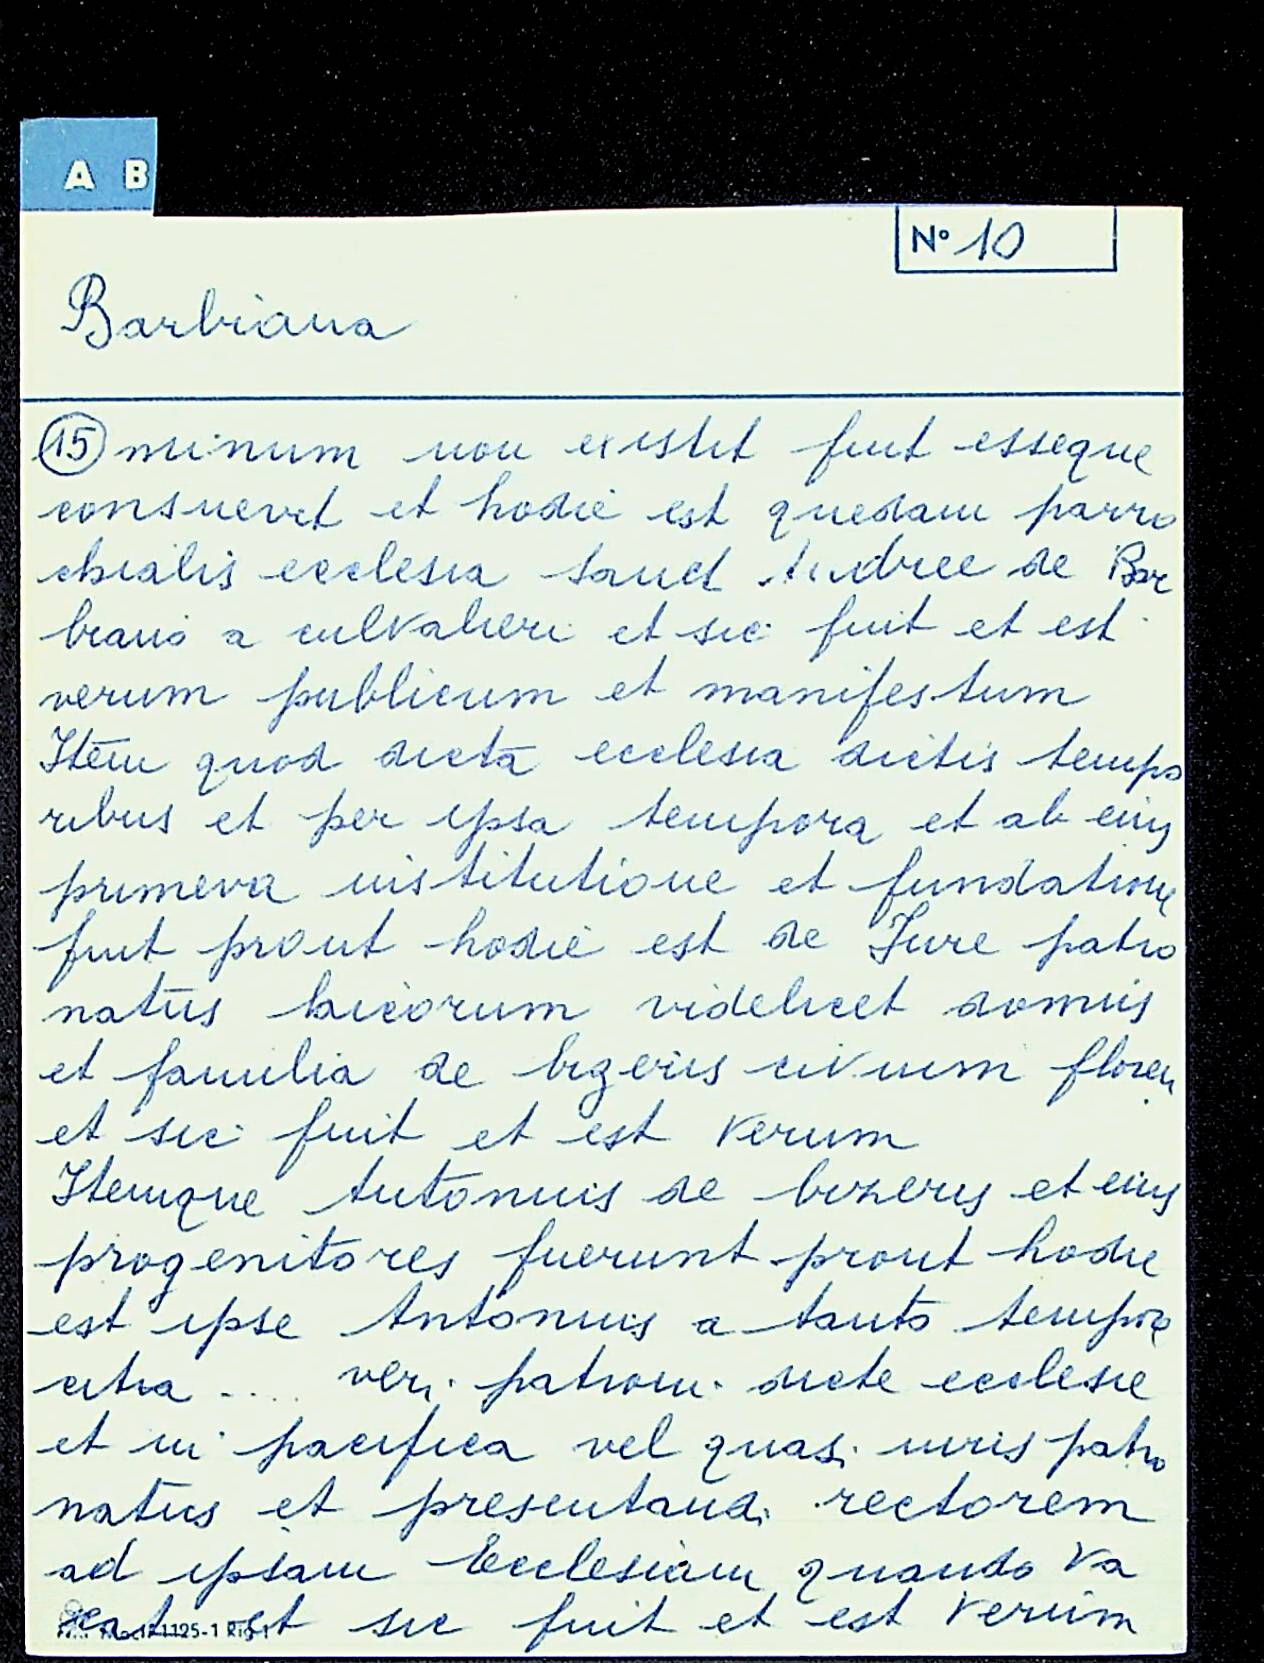 A B
Nº 10
Barbiana
15 minum non existit fuit esseque
consuevit et hodie est quedam parro
chialis ecclesia Sancti Andree de Bar
biano a
et sic fuit et est
verum publicum et manifestum
Item quod dicta ecclesia dictis tempo
ribus et per ipsa tempora et ab eius
primeva institutione et fundatione
fuit prout hodie est de Jure patro
natus laicorum videlicet domus
et familia de civium floren
et sic fuit et est verum
Itemque Antonius de et eius
progenitores fuerunt prout hodie
est ipse Antonius a tanto tempore
citra .... veri patroni dicte ecclesie
et in pacifica vel quasi iuris patro
natus et presentandi rectorem
ad ipsam Ecclesiam quando va
cat et sic fuit et est verum